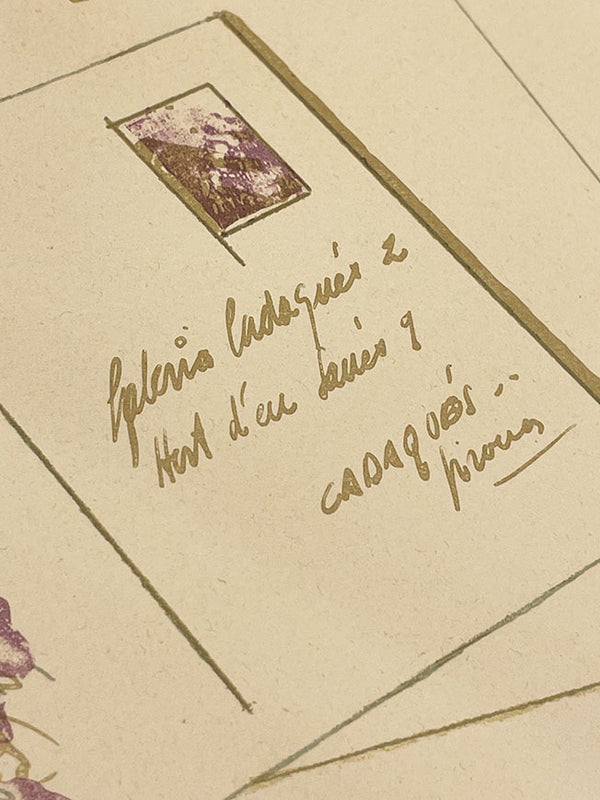 Galeria Cadaqués 2
Hort d'en Sanés 9
CADAQUÉS..
Girona